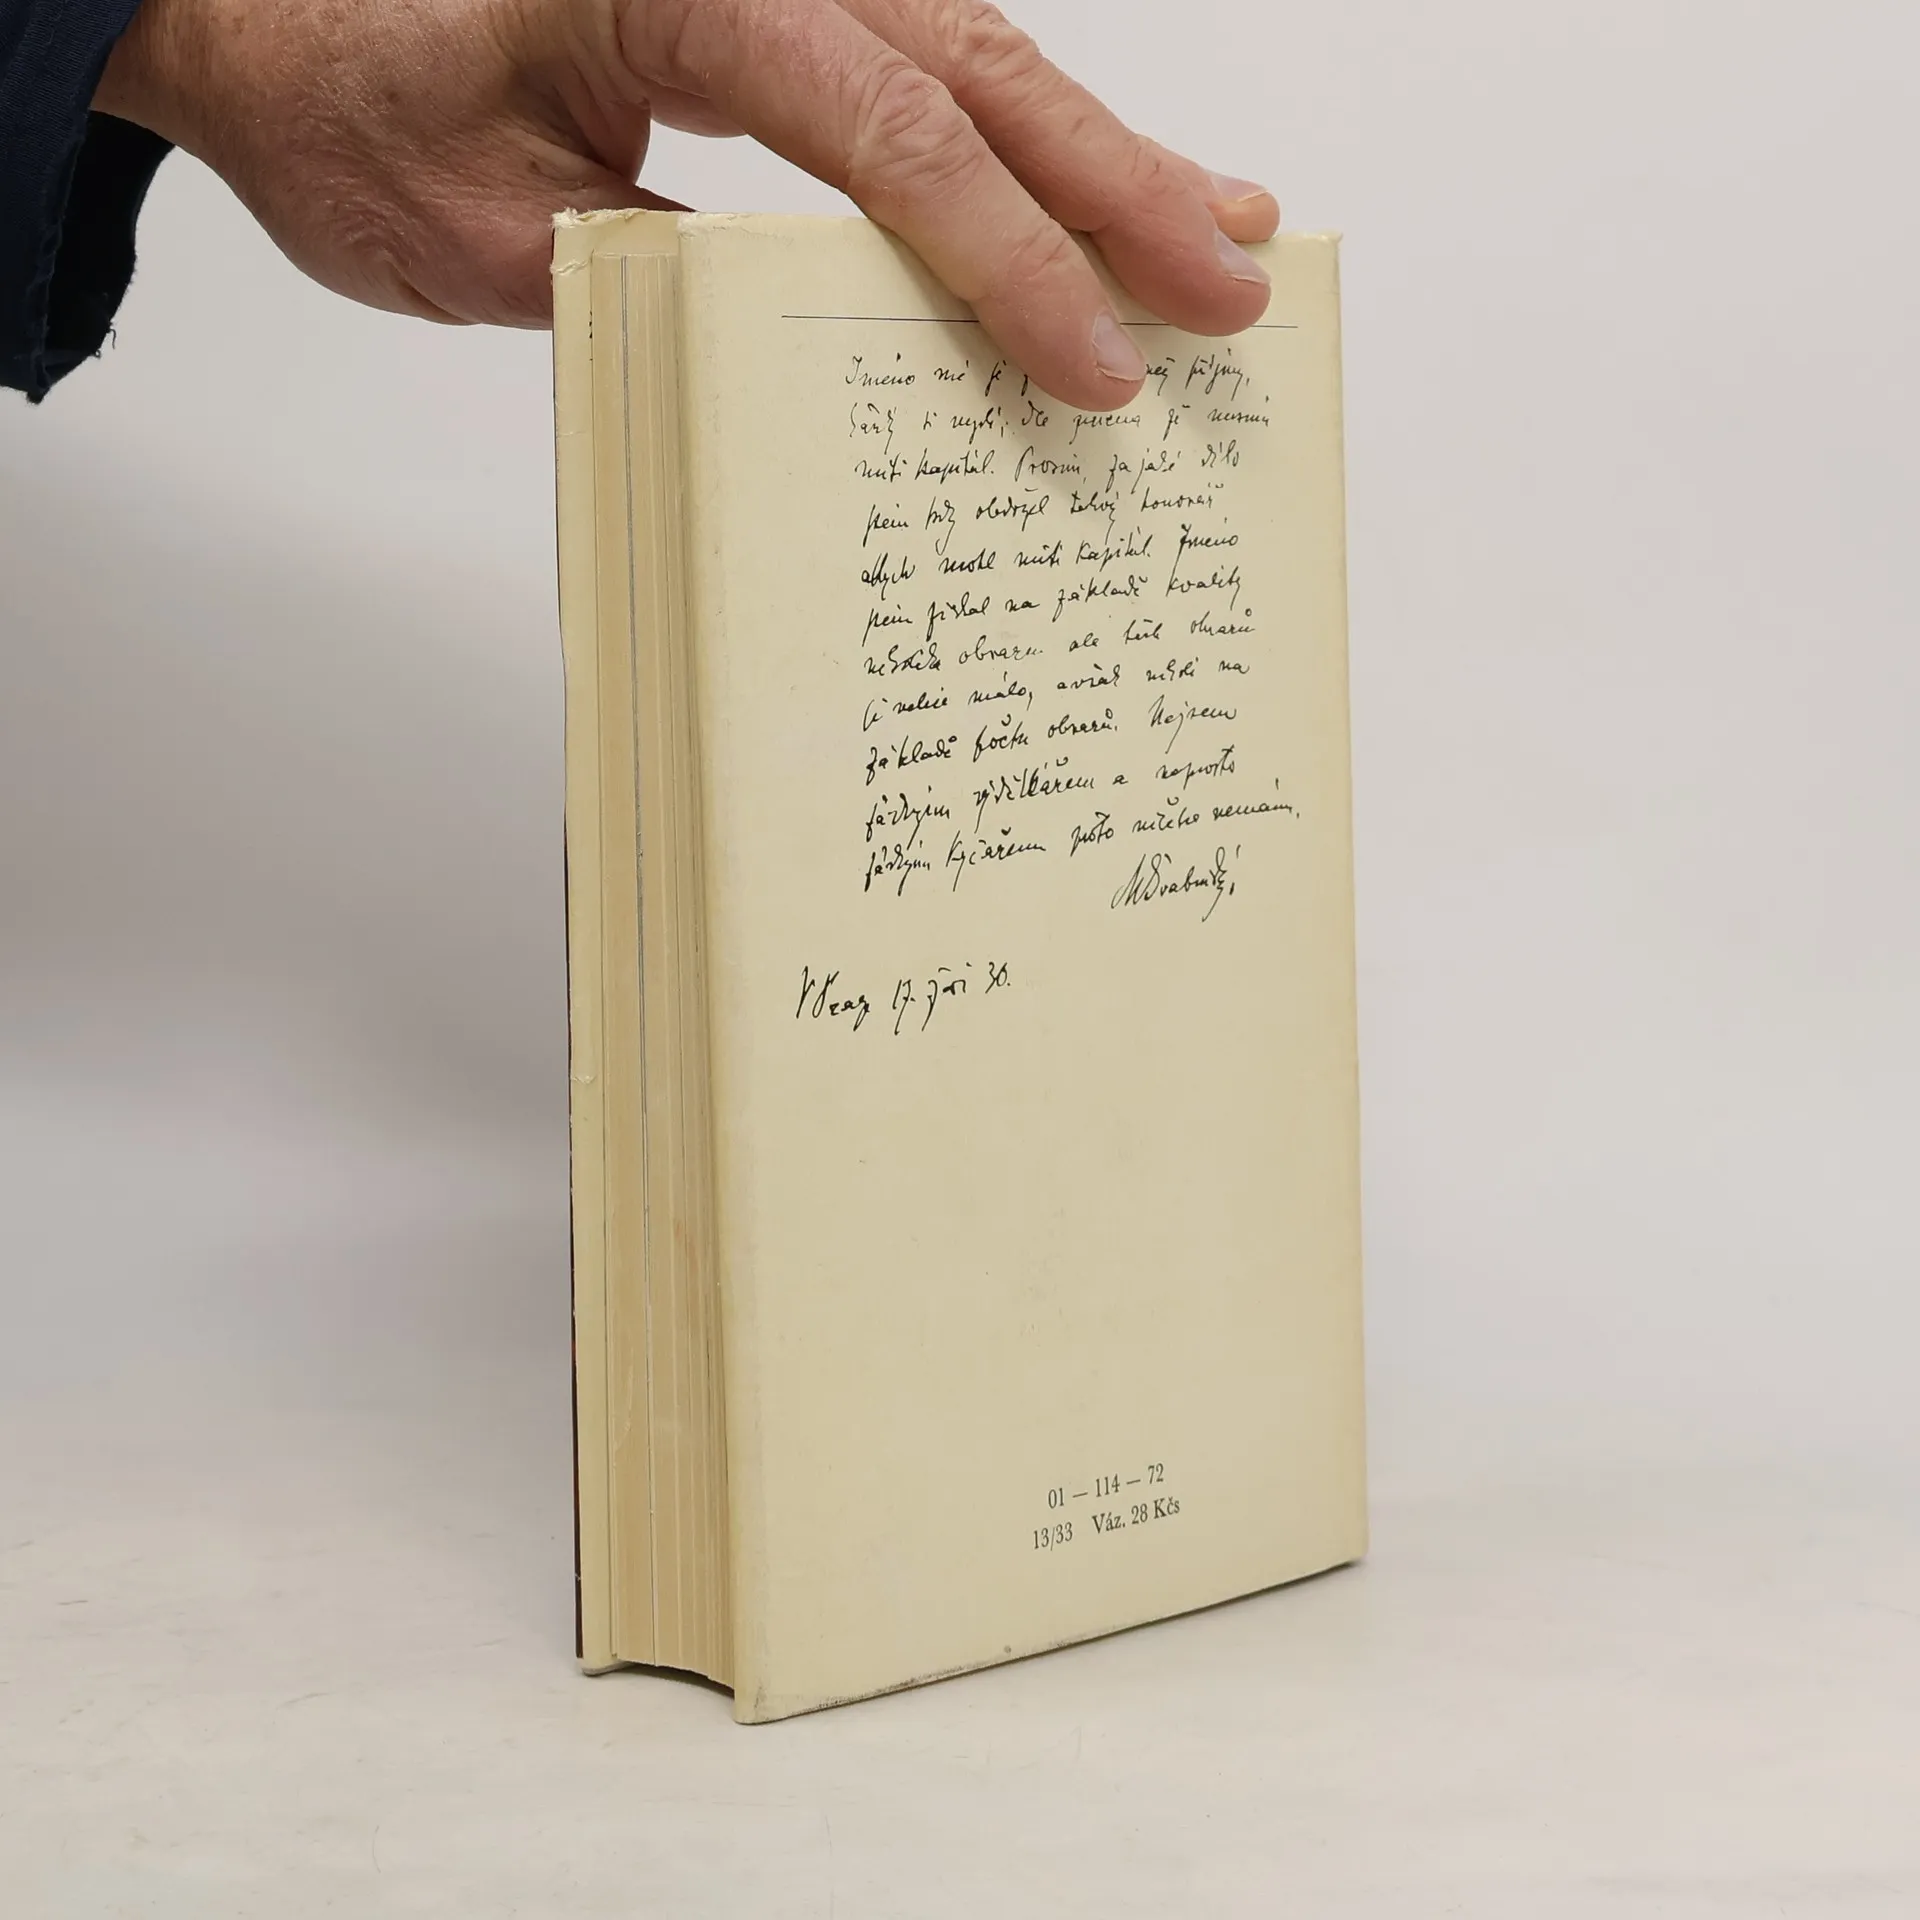 Jméno mé je příjmy,
každý si myslí, dle jména že musím
míti kapitál. Prosím, za jaké dílo
jsem kdy obdržel takový honorář
abych mohl míti kapitál. Jméno
jsem získal na základě kvality
několika obrazů ale těch obrazů
je velice málo, avšak nikoli na
základě počtu obrazů. Nejsem
žádným výdělkářem a naprosto
žádným kyčařem proto ničeho nemám.
MŠvabinský,
V Praze 17. září 30.
01 — 114 — 72
13/33 Váz. 28 Kčs